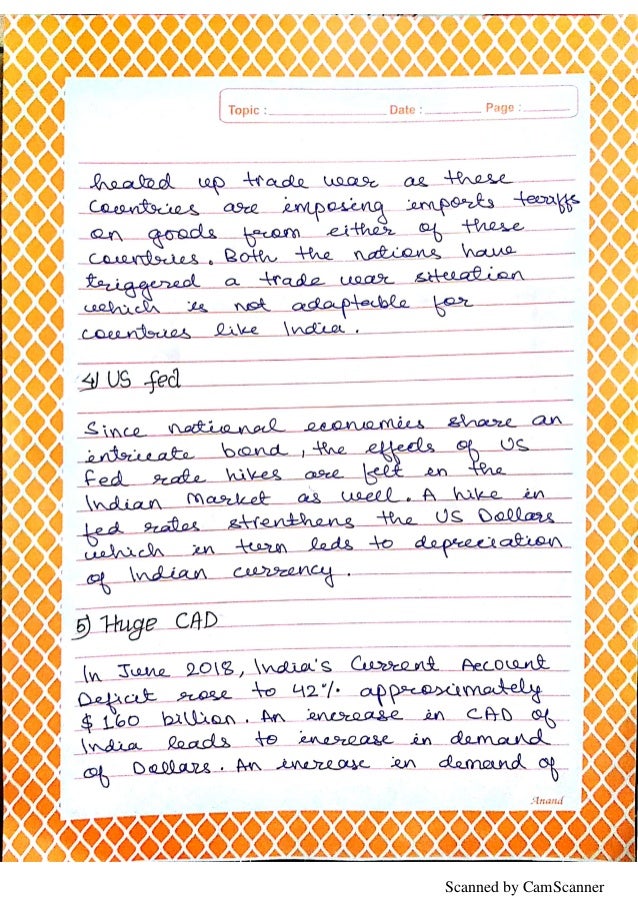 Topic : Date : Page :
heated up trade war as these
Countries are imposing imports tariffs
on goods from either of these
countries. Both the nations have
triggered a trade war situation
which is not adaptable for
countries like India.
4) US fed
Since national economies share an
intricate bond, the effects of US
Fed rate hikes are felt in the
Indian Market as well. A hike in
fed rates strenthens the US Dollars
which in turn leds to depreciation
of Indian currency.
5) Huge CAD
In June 2018, India's Current Account
Deficit rose to 42% approximately
$ 160 billion. An increase in CAD of
India leads to increase in demand
of Dollars. An increase in demand of
Anand
Scanned by CamScanner